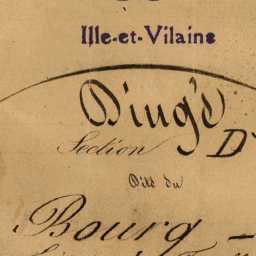 Ille-et-Vilaine
Dingé
Section D
Dite du
Bourg